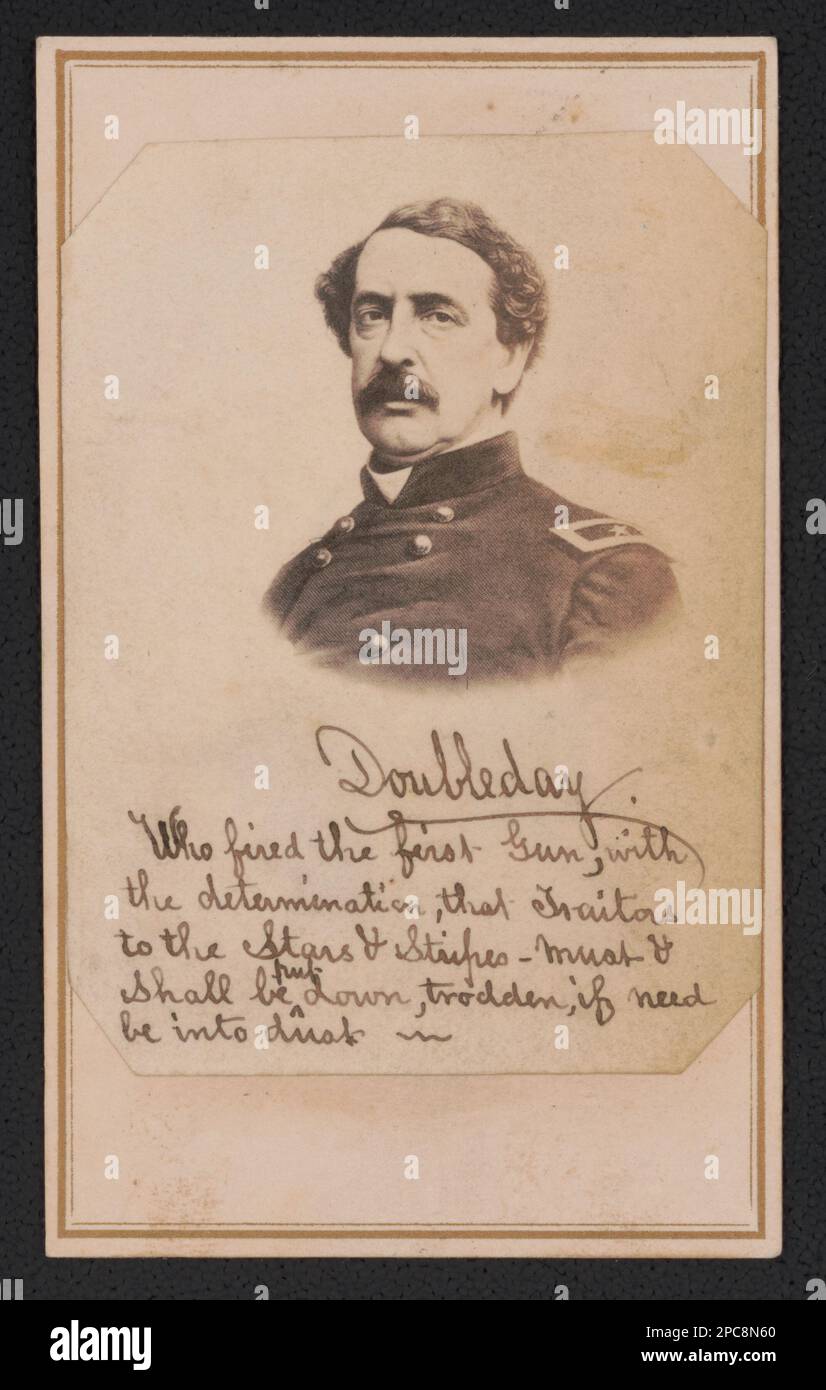 Doubleday.
Who fired the first Gun, with
the determination, that Traitors
to the Stars & Stripes - must &
shall be put down, trodden, if need
be into dust
a alamy
alamy
Image ID: 2PC8N60
www.alamy.com